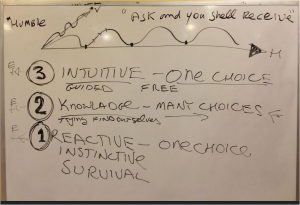 HUMBLE "ASK and you shell RECEIVE"
H
E 3 INTUITIVE - ONE CHOICE
GUIDED FREE
E 2 KNOWLADGE - MANY CHOICES
TRYING FIND OURSELVES
E 1 REACTIVE - ONE CHOICE
INSTINCTIVE
SURVIVAL